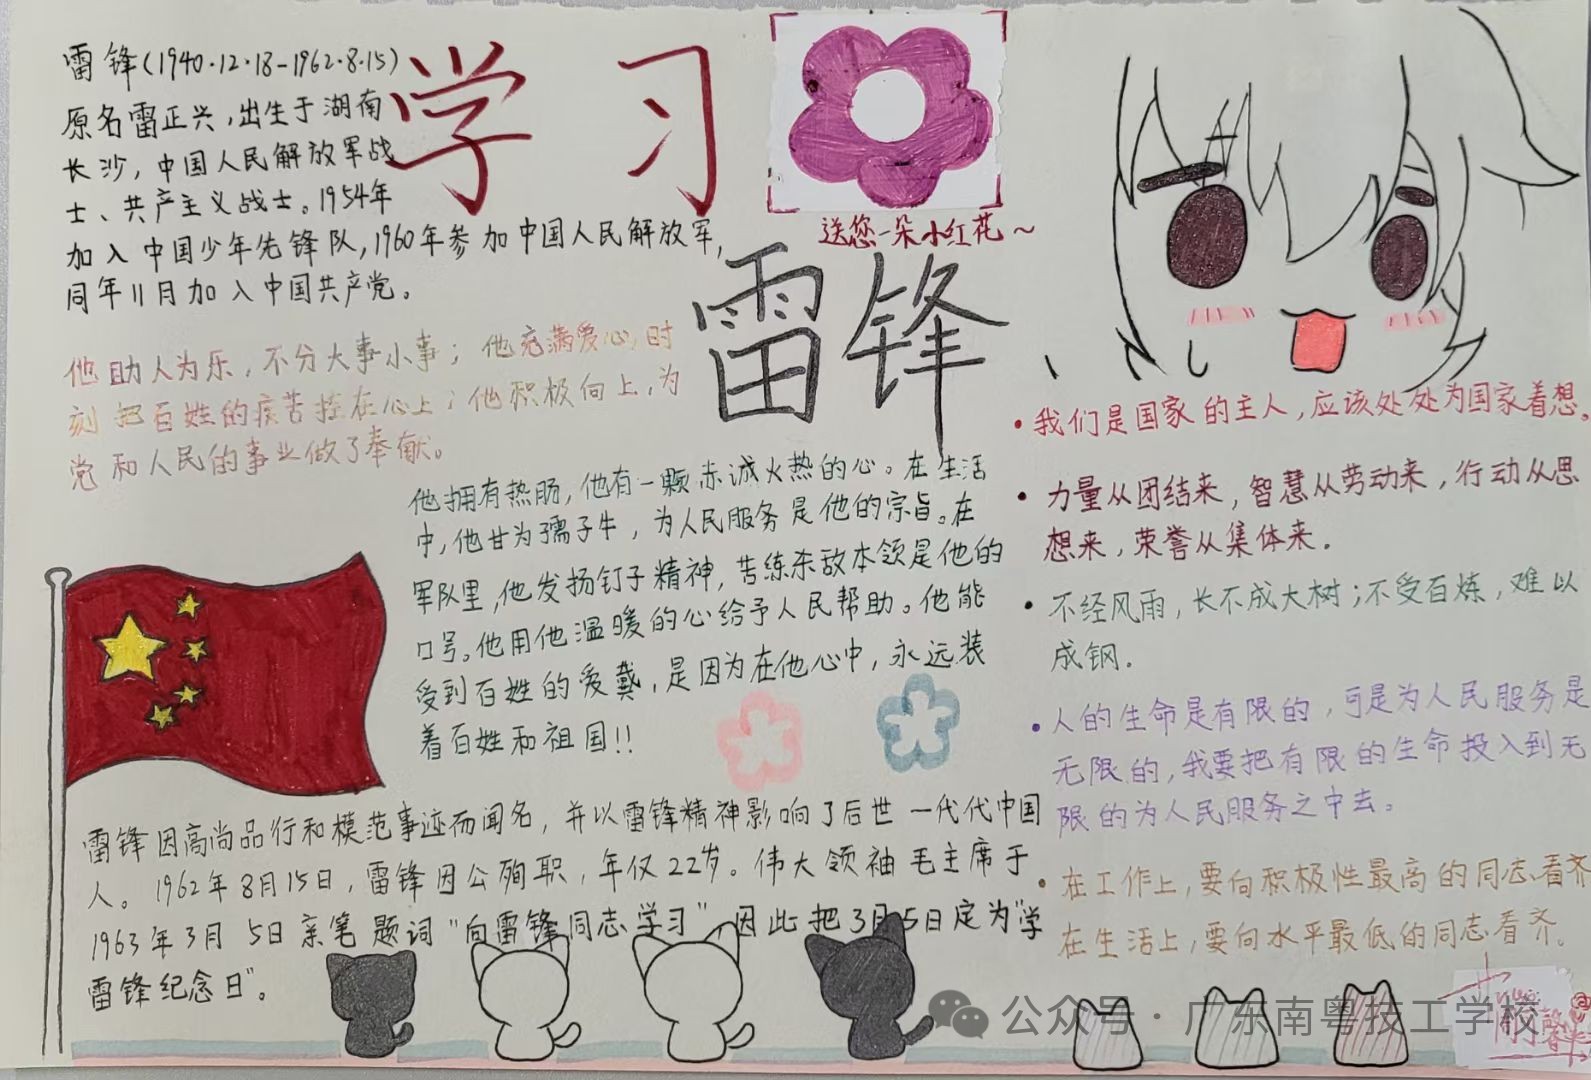 雷锋(1940·12·18-1962·8·15)
原名雷正兴,出生于湖南
长沙,中国人民解放军战
士、共产主义战士。1954年
加入中国少年先锋队,1960年参加中国人民解放军,
同年11月加入中国共产党。
学习
送您一朵小红花~
雷锋
他助人为乐,不分大事小事;他充满爱心,时
刻把百姓的疾苦挂在心上;他积极向上,为
党和人民的事业做了奉献。
他拥有热肠,他有一颗赤诚火热的心。在生活
中,他甘为孺子牛,为人民服务是他的宗旨。在
军队里,他发扬钉子精神,苦练杀敌本领是他的
口号。他用他温暖的心给予人民帮助。他能
受到百姓的爱戴,是因为在他心中,永远装
着百姓和祖国!!
雷锋因高尚品行和模范事迹而闻名,并以雷锋精神影响了后世一代代中国
人。1962年8月15日,雷锋因公殉职,年仅22岁。伟大领袖毛主席于
1963年3月5日亲笔题词"向雷锋同志学习"因此把3月5日定为"学
雷锋纪念日"。
·我们是国家的主人,应该处处为国家着想。
·力量从团结来,智慧从劳动来,行动从思
想来,荣誉从集体来.
·不经风雨,长不成大树;不受百炼,难以
成钢.
·人的生命是有限的,可是为人民服务是
无限的,我要把有限的生命投入到无
限的为人民服务之中去。
·在工作上,要向积极性最高的同志看齐
在生活上,要向水平最低的同志看齐。
公众号·广东南粤技工学校